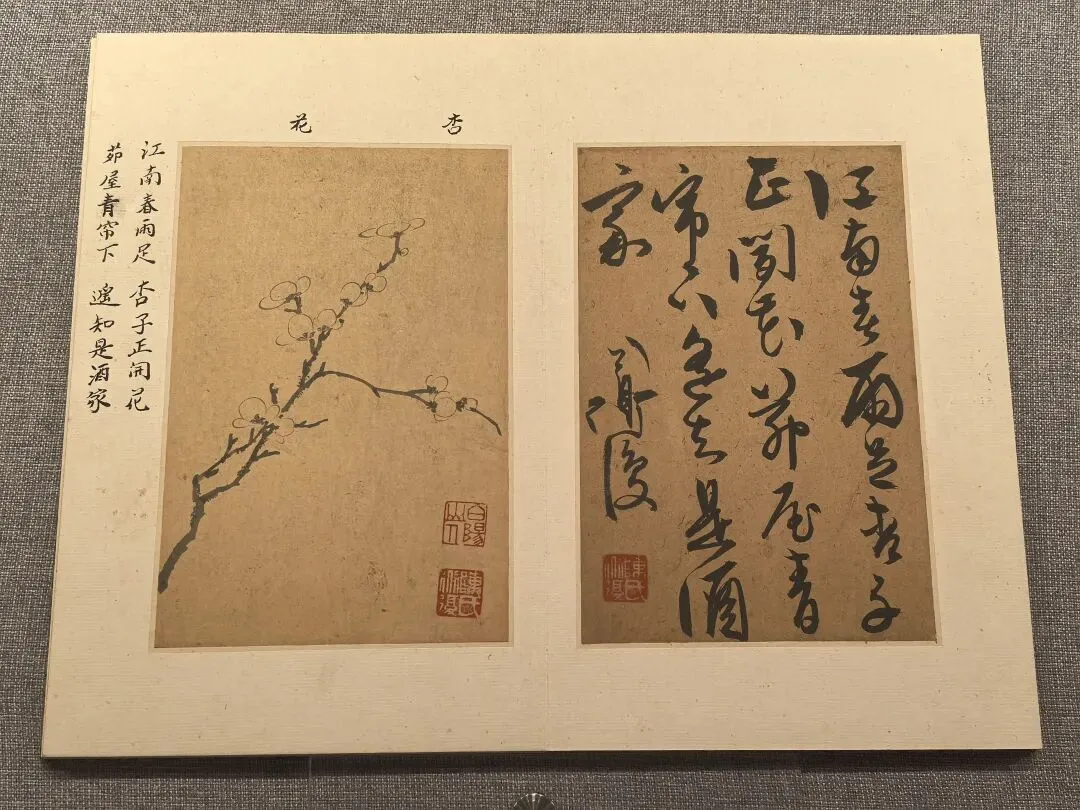 江南春雨足杏子
正開花茆屋青
帘下遥知是酒
家
道復
陳氏道復
杏花
白陽山人
陳氏道復
江南春雨足 杏子正開花
茆屋青帘下 遥知是酒家